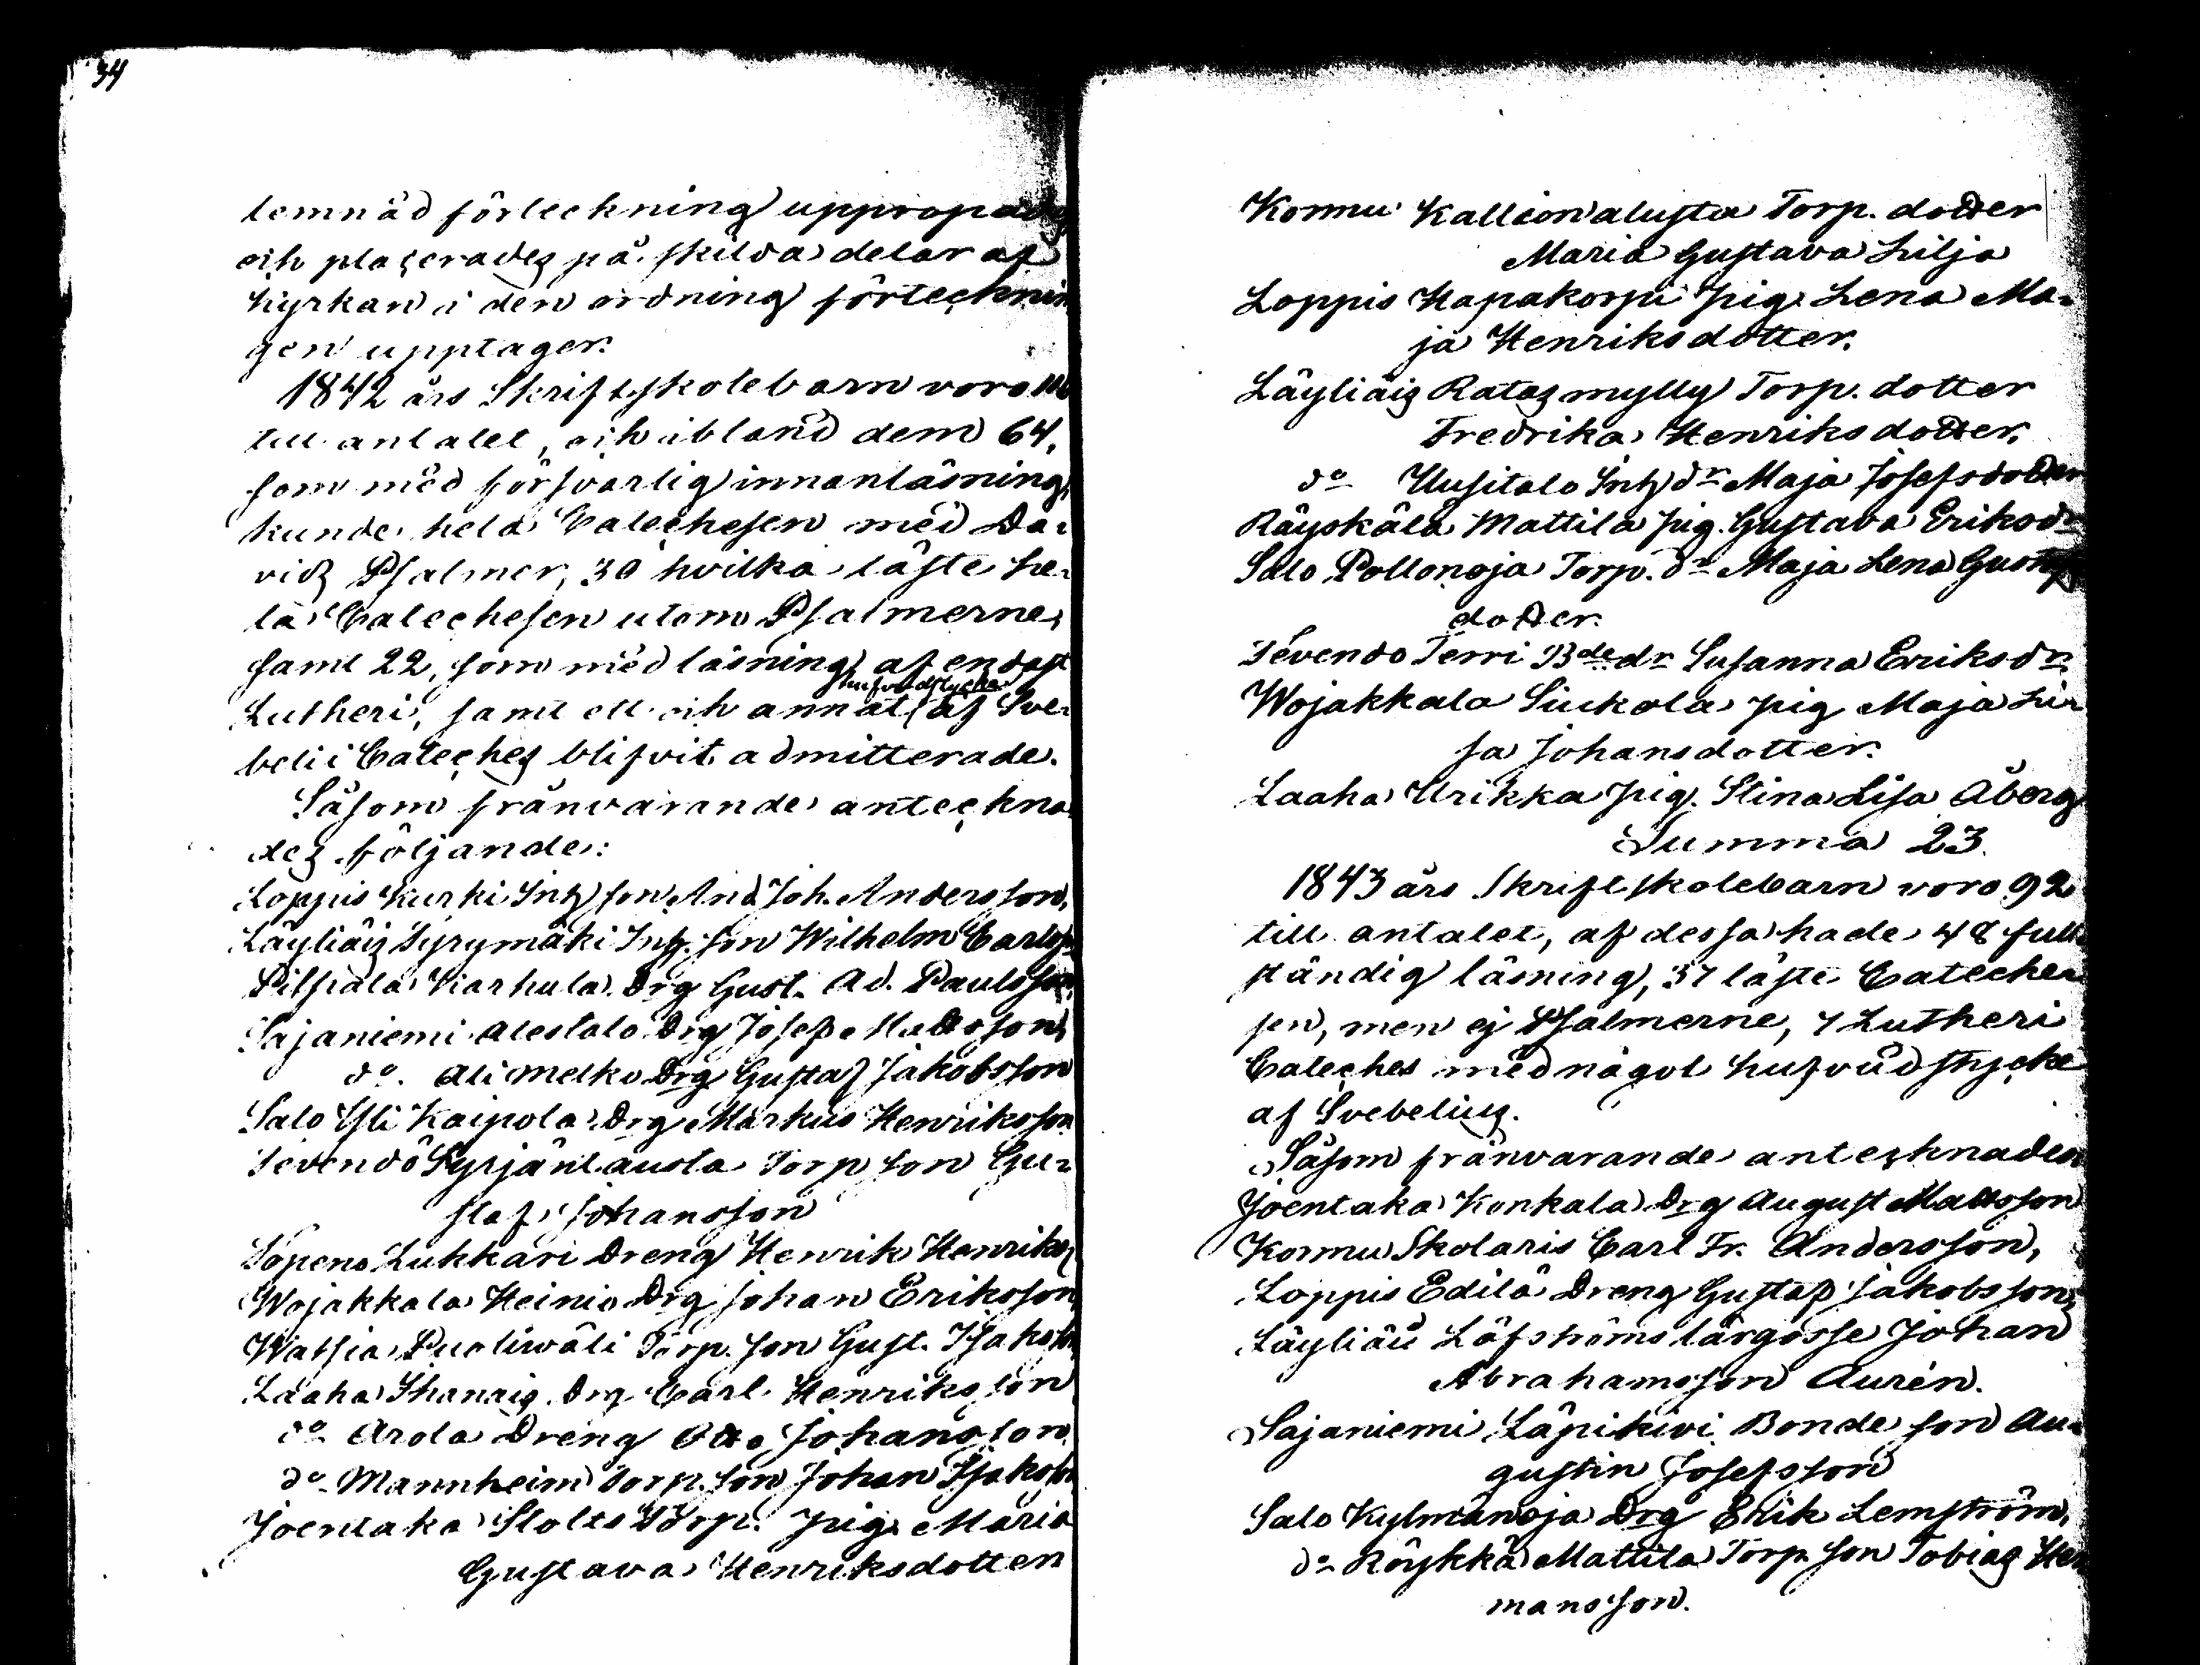 34
lemnad förteckning uppropades
och placerades på skilda delar af
kyrkan i den ordning förtecknin
gen upptager.
1842 års Skriftskolebarn voro
till antalet, och ibland dem 64,
som med försvarlig innanläsning,
kunde hela Catechesen med Da-
vids Psalmer, 30 hvilka läste he-
la Catechesen utom Psalmerne,
samt 22, som med läsning af endast
hufvudstycke
Lutheri, samt ett och annat af Sve-
belii Cateches blifvit admitterade.
Såsom frånvarande anteckna-
des följande:
Loppis Kurki Inh son And Joh. Andersson,
Läyliäis Syrymäki Inh. son Wilhelm Carlss
Pilpala Kiarhula Drg Gust. Ad. Paulsson,
Sajaniemi Alestalo Drg Josef Mattsson,
do. Ali Melko Drg Gustaf Jakobsson
Salo Yli Kaipola Drg Markus Henriksson
Tevendö Syrjäntausta Torp son Gu-
staf Johansson
Topeno Luhkari Dreng Henrik Henriks
Wojakkala Heinio Drg Johan Eriksson
Watsia Puoliwäli Torp. son Gust. Isaksson
Laaha Ihanais Drg Carl Henriksson
do Arola Dreng Otto Johansson,
do Mannheim Torp. son Johan Isaksson
Joentaka Stolts Torp. pig. Maria
Gustava Henriksdotter
Kormu Kallionalusta Torp. dotter
Maria Gustava Lilja
Loppis Hapakorpi pig. Lena Ma-
ja Henriksdotter.
Läyliäis Ratasmylly Torp. dotter
Fredrika Henriksdotter,
do Uusitalo Inh dr Maja Josefsdotter
Räyskälä Mattila pig. Gustava Eriksdr
Salo Pollonoja Torp. dr Maja Lena Gustafs
dotter.
Tevendö Terri Bde dr Susanna Eriksdr
Wojakkala Siukola pig Maja Li-
sa Johansdotter.
Laaha Urikka pig. Stina Lisa Åberg
Summa 23.
1843 års Skriftskolebarn voro 92
till antalet, af dessa hade 48 full-
ständig läsning, 37 läste Cateche-
sen, men ej Psalmerne, 7 Lutheri
Cateches med något hufvudstycke
af Svebelius.
Såsom frånvarande antecknades
Joentaka Konkala Drg August Mattsson
Kormu Skolaris Carl Fr. Andersson,
Loppis Edilä Dreng Gustaf Jakobsson,
Läyliäis Löfströms lärgosse Johan
Abrahamsson Aurén.
Sajaniemi Läpikivi Bonde son Au-
gustin Josefsson
Salo Kylmänoja Drg Erik Lemström,
do Röykkä Mattila Torp son Tobias Her
mansson.